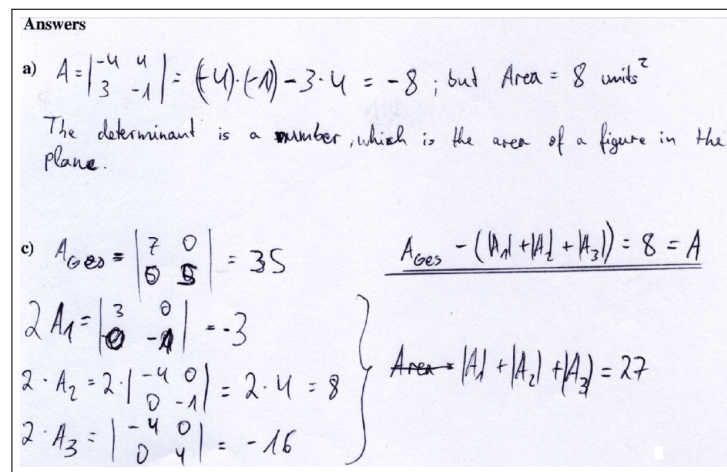 Answers
a) A = |-4 4; 3 -1| = (-4)·(-1) - 3·4 = -8 ; but Area = 8 units²
The determinant is a number, which is the area of a figure in the
plane.
c) A_Ges = |7 0; 0 5| = 35
A_Ges - (|A_1| + |A_2| + |A_3|) = 8 = A
2 A_1 = |3 0; 0 -1| = -3
2 · A_2 = 2 · |-4 0; 0 -1| = 2 · 4 = 8
Area = |A_1| + |A_2| + |A_3| = 27
2 · A_3 = |-4 0; 0 4| = -16